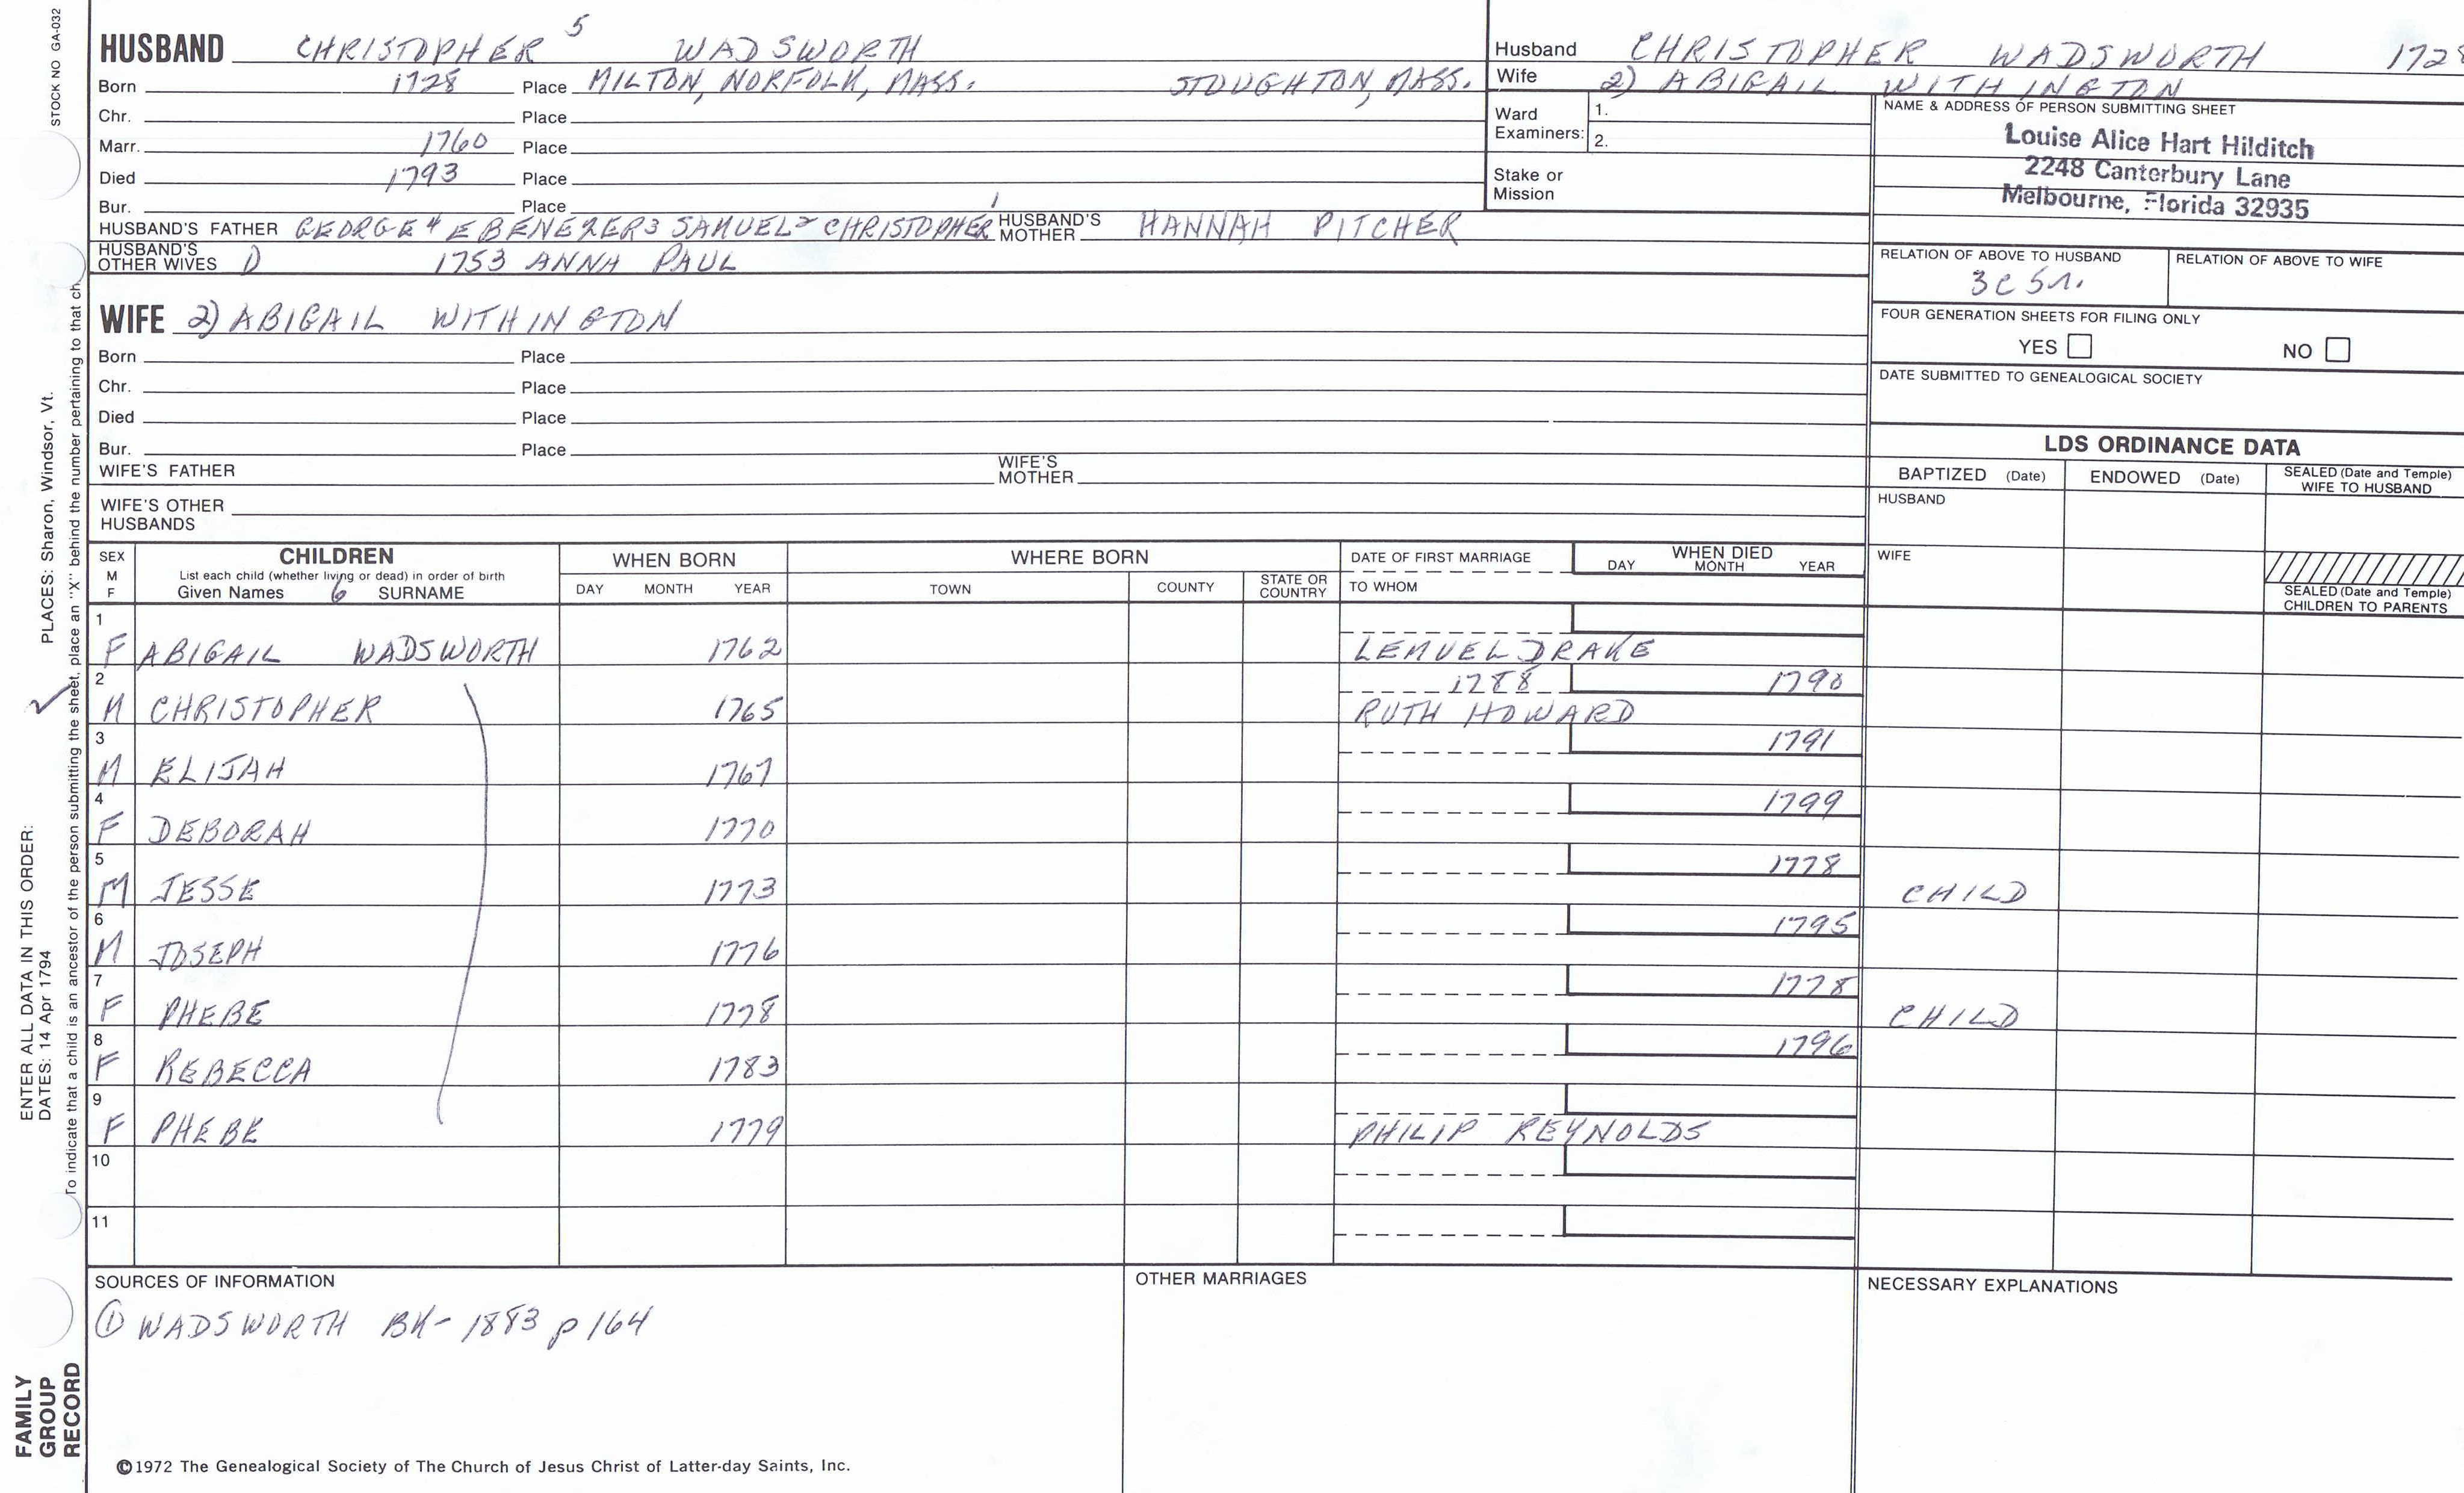 STOCK NO GA-032
HUSBAND CHRISTOPHER 5 WADSWORTH
Born 1728 Place MILTON, NORFOLK, MASS. STOUGHTON, MASS.
Chr. Place
Marr. 1760 Place
Died 1793 Place
Bur. Place
HUSBAND'S FATHER GEORGE4 EBENEZER3 SAMUEL2 CHRISTOPHER1 HUSBAND'S MOTHER HANNAH PITCHER
HUSBAND'S OTHER WIVES 1) 1753 ANNA PAUL
WIFE 2) ABIGAIL WITHINGTON
Born Place
Chr. Place
Died Place
Bur. Place
WIFE'S FATHER WIFE'S MOTHER
WIFE'S OTHER HUSBANDS
Husband CHRISTOPHER WADSWORTH 1728
Wife 2) ABIGAIL WITHINGTON
Ward Examiners: 1.
2.
Stake or Mission
NAME & ADDRESS OF PERSON SUBMITTING SHEET
Louise Alice Hart Hilditch
2248 Canterbury Lane
Melbourne, Florida 32935
RELATION OF ABOVE TO HUSBAND RELATION OF ABOVE TO WIFE
3C 5r.
FOUR GENERATION SHEETS FOR FILING ONLY
YES NO
DATE SUBMITTED TO GENEALOGICAL SOCIETY
LDS ORDINANCE DATA
BAPTIZED (Date) ENDOWED (Date) SEALED (Date and Temple) WIFE TO HUSBAND
HUSBAND
WIFE
SEALED (Date and Temple) CHILDREN TO PARENTS
SEX M F CHILDREN WHEN BORN WHERE BORN DATE OF FIRST MARRIAGE WHEN DIED
List each child (whether living or dead) in order of birth
Given Names 6 SURNAME DAY MONTH YEAR TOWN COUNTY STATE OR COUNTRY TO WHOM DAY MONTH YEAR
1
F ABIGAIL WADSWORTH 1762 LEMUEL DRAKE
2 1788 1790
M CHRISTOPHER 1765 RUTH HOWARD
3 1791
M ELIJAH 1767
4 1799
F DEBORAH 1770
5 1778
M JESSE 1773 CHILD
6 1795
M JOSEPH 1776
7 1778
F PHEBE 1778 CHILD
8 1796
F REBECCA 1783
9
F PHEBE 1779 PHILIP REYNOLDS
10
11
SOURCES OF INFORMATION OTHER MARRIAGES NECESSARY EXPLANATIONS
① WADSWORTH BK- 1883 p 164
©1972 The Genealogical Society of The Church of Jesus Christ of Latter-day Saints, Inc.
ENTER ALL DATA IN THIS ORDER:
DATES: 14 Apr 1794 PLACES: Sharon, Windsor, Vt.
To indicate that a child is an ancestor of the person submitting the sheet, place an "X" behind the number pertaining to that ch
FAMILY
GROUP
RECORD